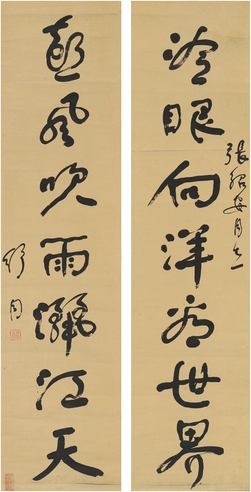 冷眼向洋看世界
張安同志
熱風吹雨灑江天
舒同